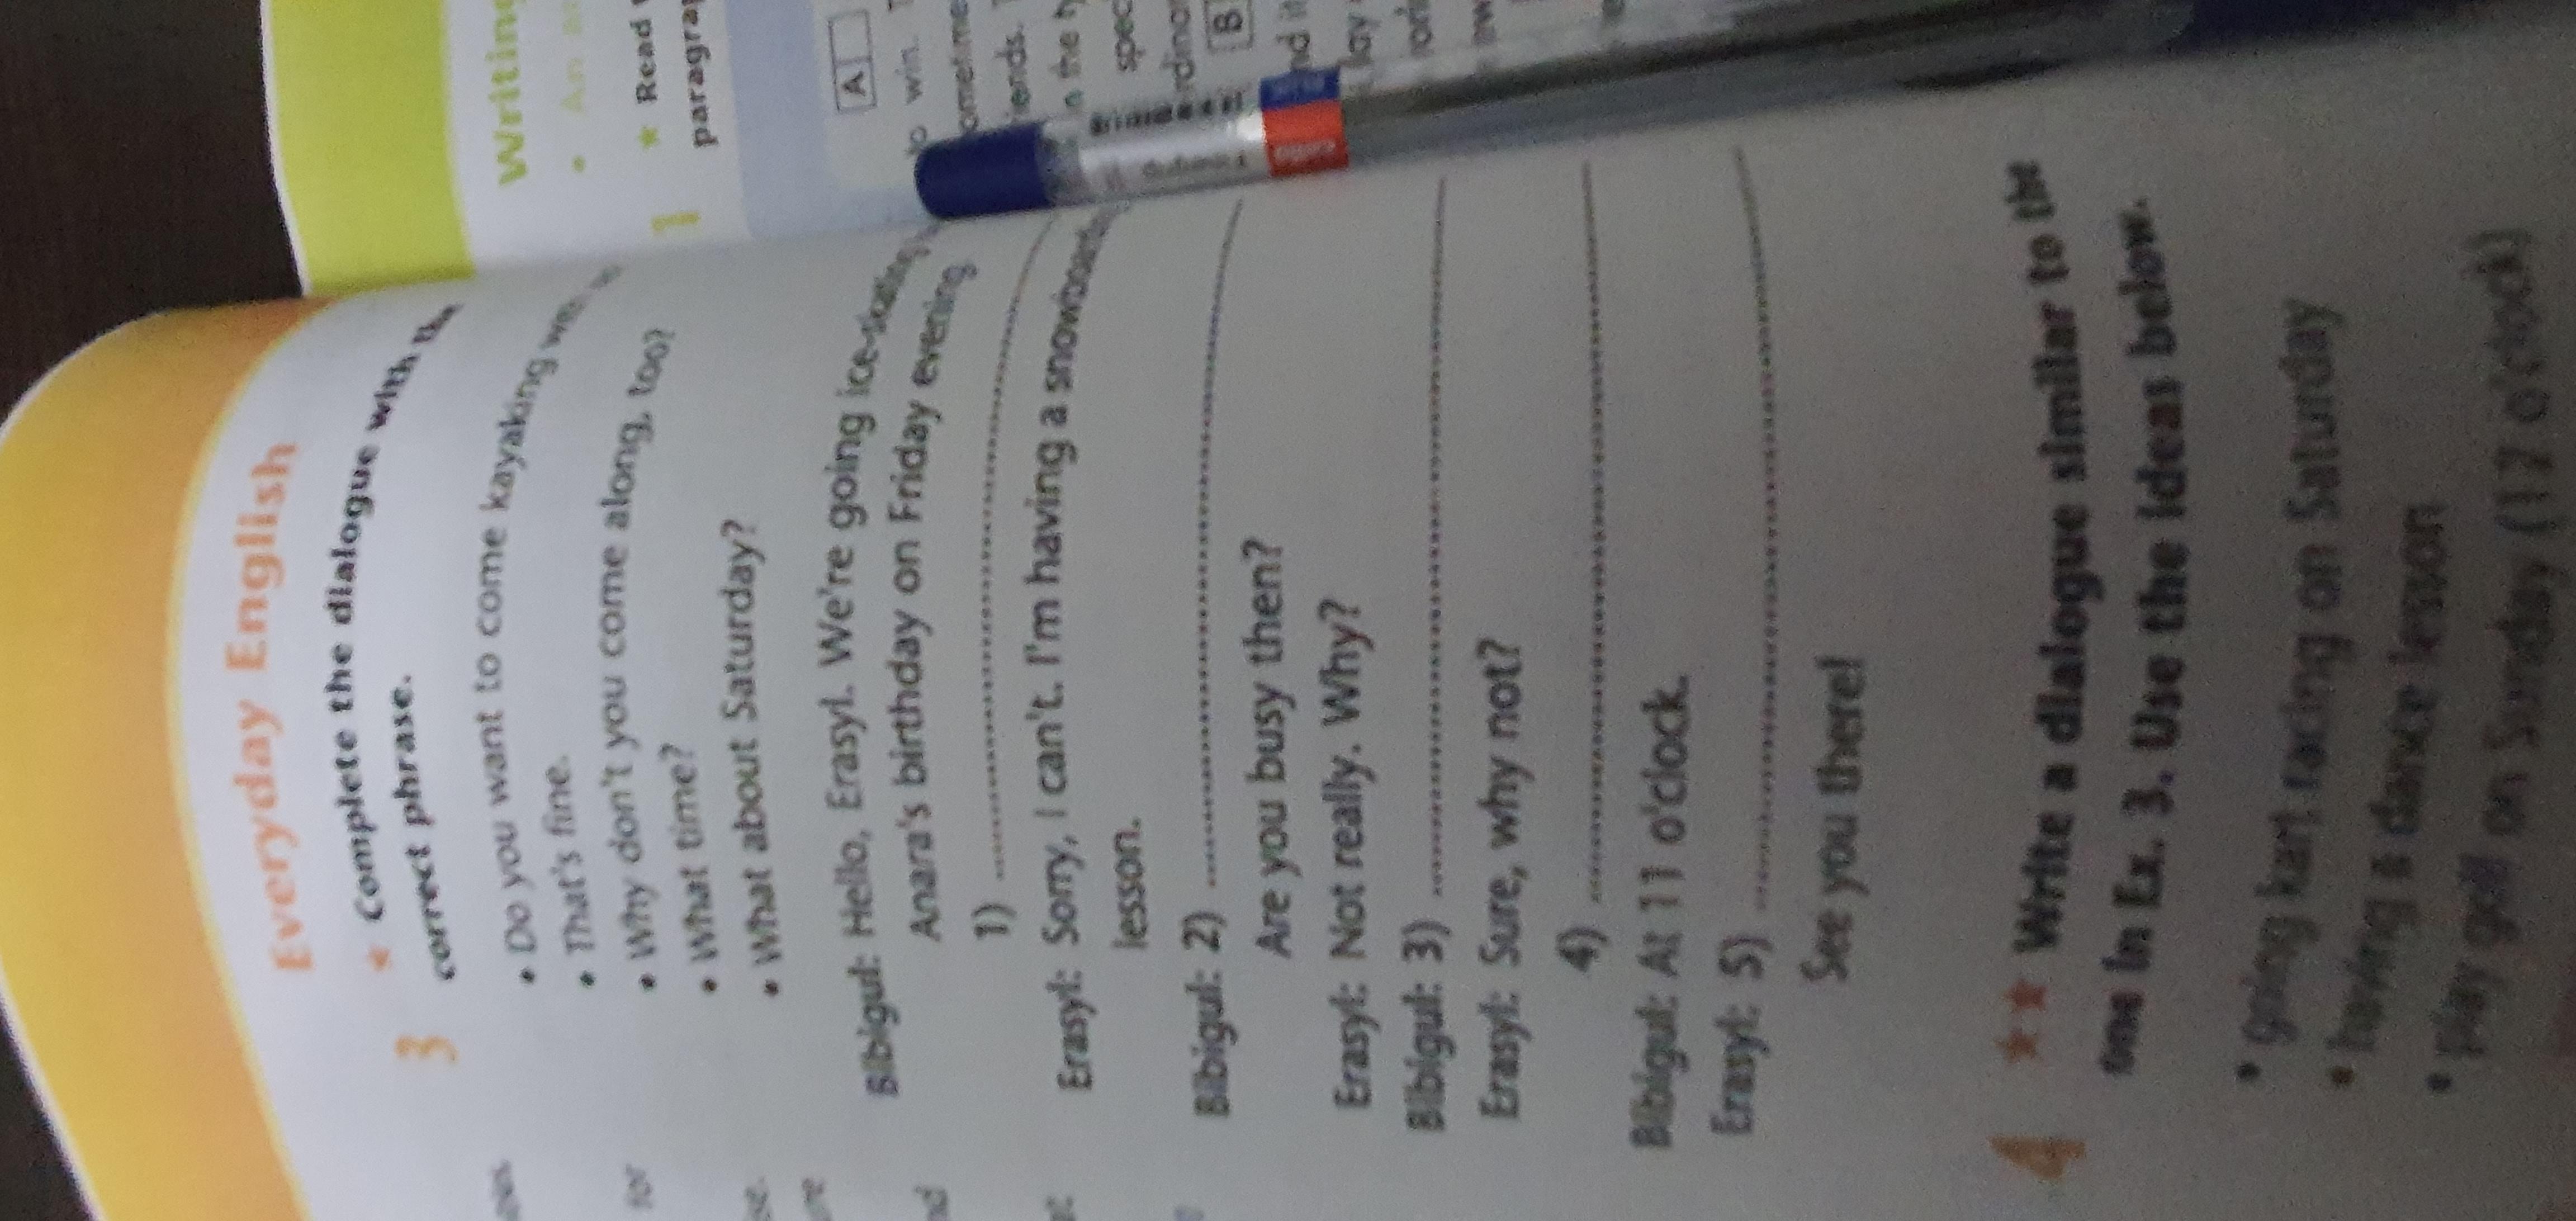 Everyday English
3 ★ Complete the dialogue with the
correct phrase.
• Do you want to come kayaking with
• That's fine.
• Why don't you come along, too?
• What time?
• What about Saturday?
Bibigul: Hello, Erasyl. We're going ice-skating
Anara's birthday on Friday evening.
1)
Erasyl: Sorry, I can't. I'm having a snowboard
lesson.
Bibigul: 2)
Are you busy then?
Erasyl: Not really. Why?
Bibigul: 3)
Erasyl: Sure, why not?
4)
Bibigul: At 11 o'clock.
Erasyl: 5)
See you there!
4 ★★ Write a dialogue similar to the
one in Ex. 3. Use the ideas below.
• going kart racing on Saturday
• having a dance lesson
• play golf on Sunday (12 o'clock)
for
Writing
• An
1 ★ Read
paragra
A
to win.
ometime
iends.
in the
spec
rdina
B
nd it
lay